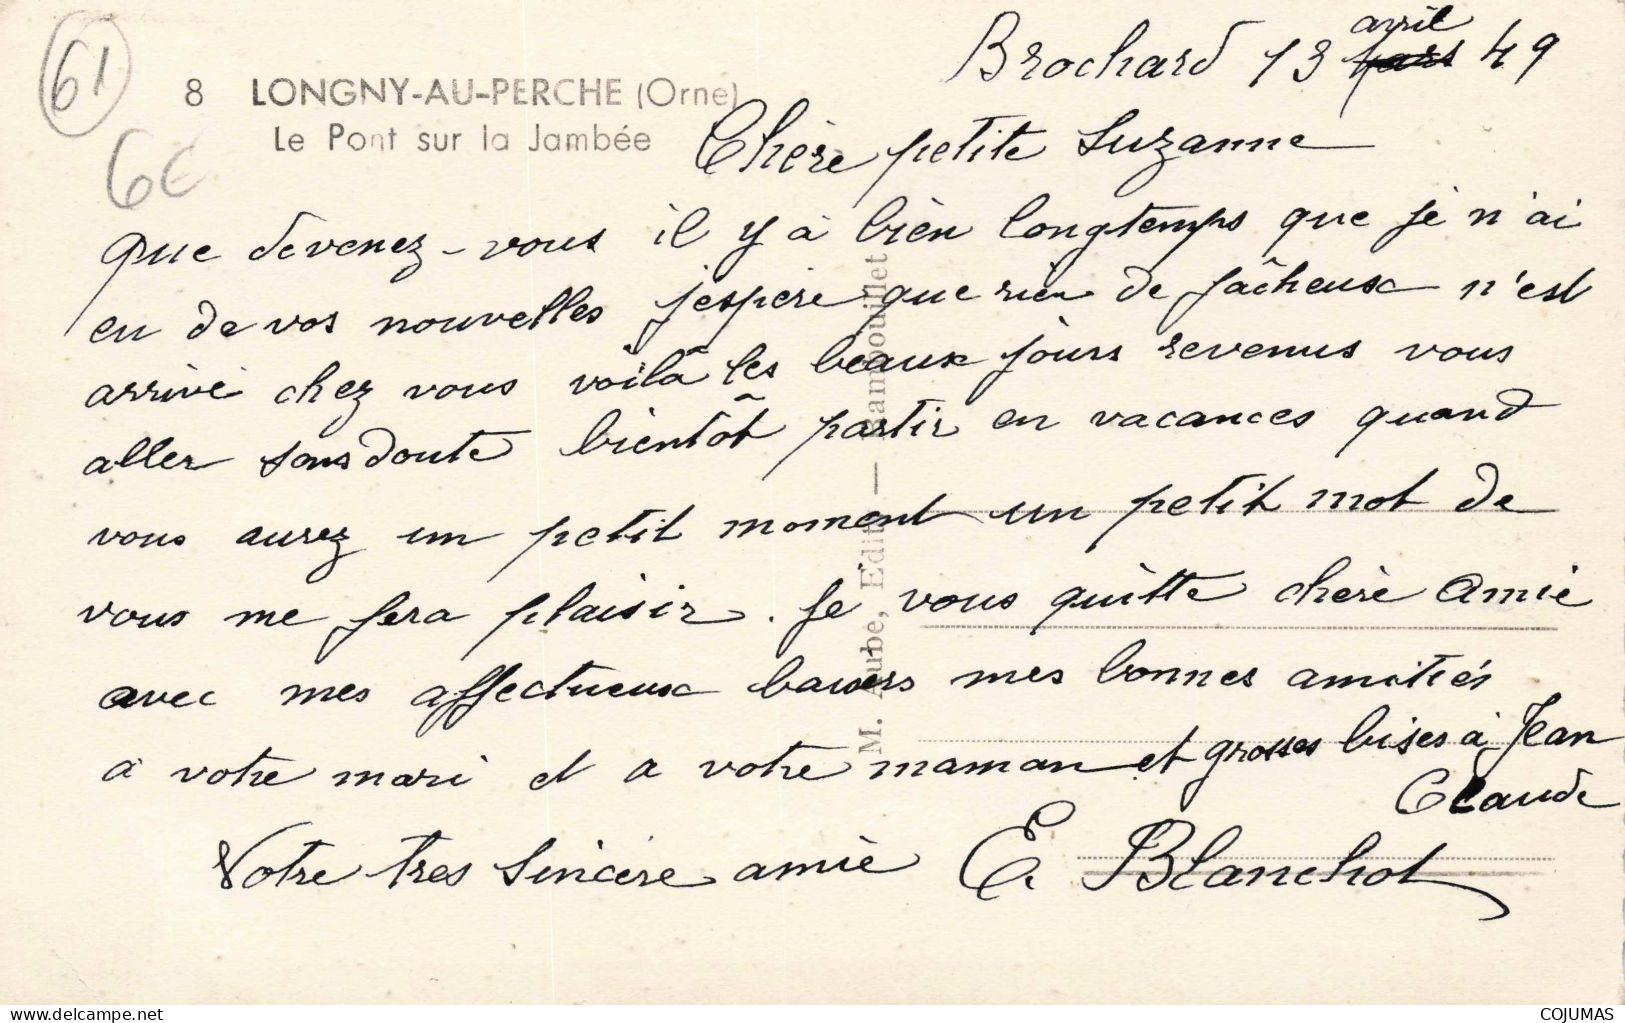 61
6€
8 LONGNY-AU-PERCHE (Orne)
Le Pont sur la Jambée
Brochard 13 avril 49
Chère petite Suzanne
que devenez-vous il y à bien longtemps que je n'ai
eu de vos nouvelles j'espère que rien de fâcheux n'est
arrivé chez vous voilà les beaux jours revenus vous
aller sans doute bientôt partir en vacances quand
vous aurez un petit moment un petit mot de
vous me fera plaisir. Je vous quitte chère Amie
avec mes affectueux baisers mes bonnes amitiés
a votre mari et a votre maman et grosses bises à Jean
Claude
Votre tres sincère amie E. Blanchot
M. Aube, Edit. — Rambouillet
delcampe.net
COJUMAS